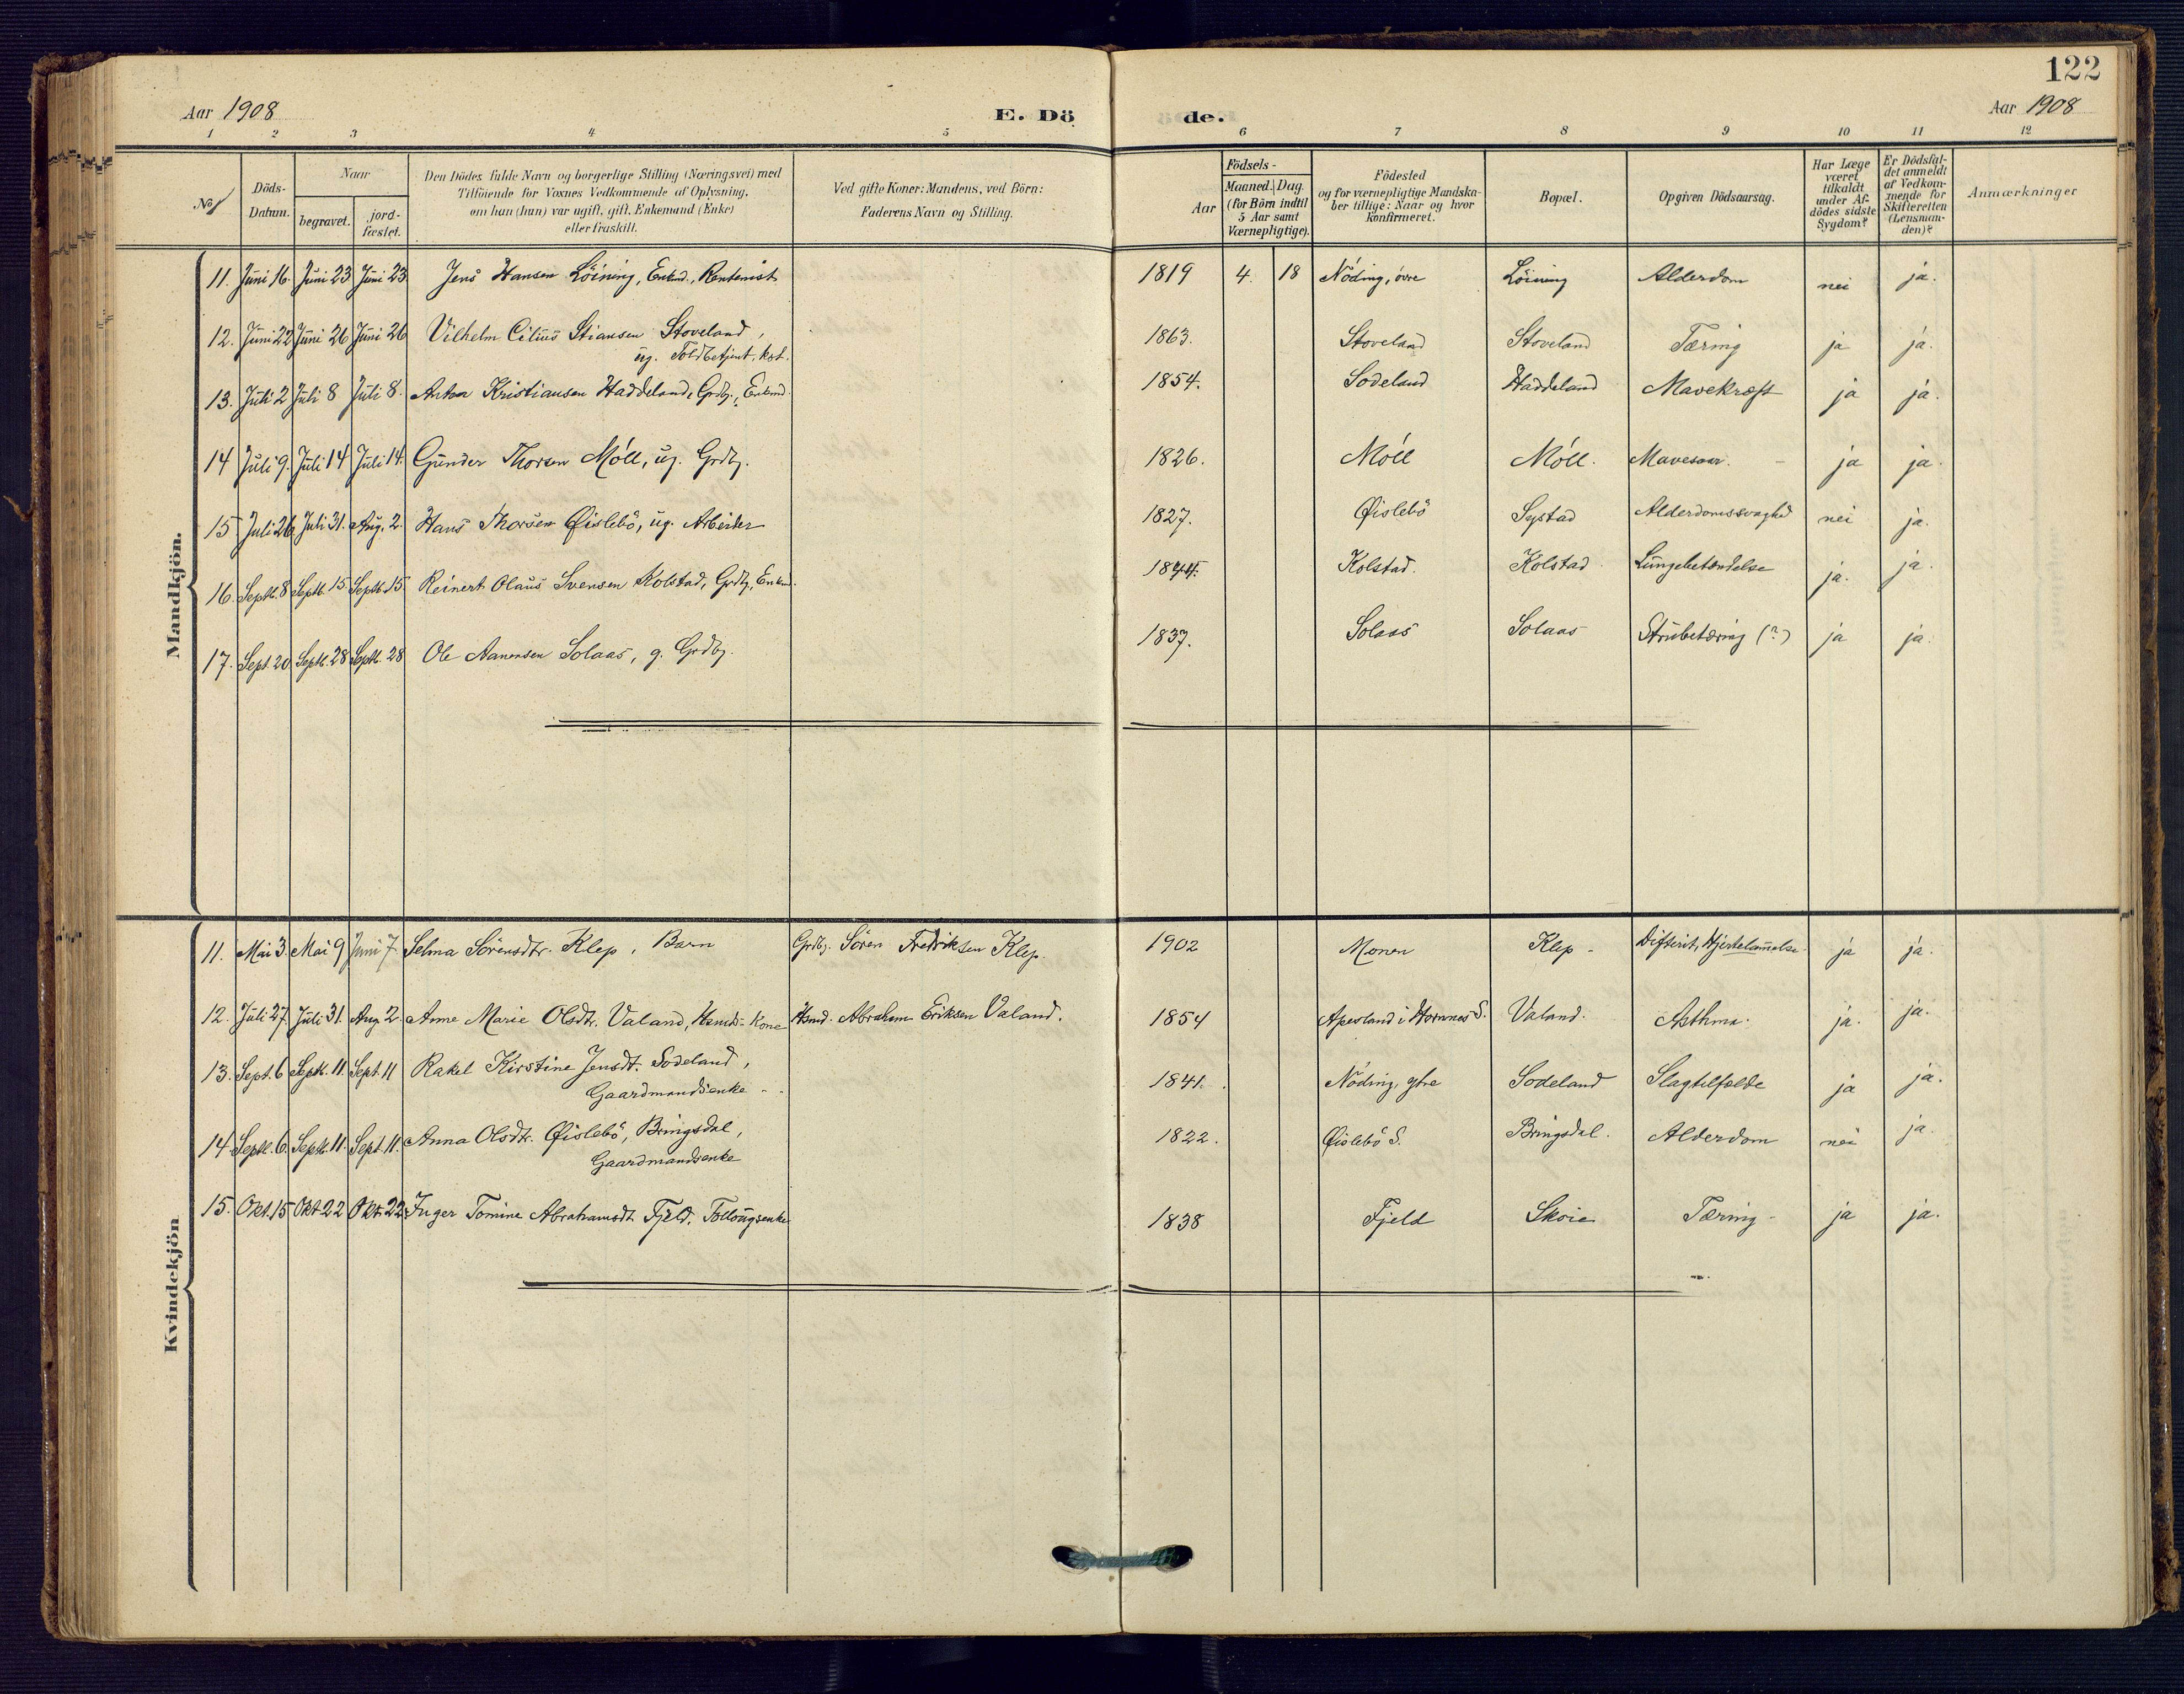 122
Aar 1908 E. Dö de. Aar 1908
1 2 3 4 5 6 7 8 9 10 11 12
No Döds-Datum. Naar begravet. jordfæstet. Den Dödes fulde Navn og borgerlige Stilling (Næringsvei) med Tilföiende for Voxnes Vedkommende af Oplysning, om han (hun) var ugift, gift, Enkemand (Enke) eller fraskilt. Ved gifte Koner: Mandens, ved Börn: Faderens Navn og Stilling. Aar Födsels- Maaned. Dag. (for Börn indtil 5 Aar samt Værnepligtige). Födested og for værnepligtige Mandskaber tillige: Naar og hvor konfirmeret. Bopæl. Opgiven Dödsaarsag. Har Læge været tilkaldt under Afdödes sidste Sygdom? Er Dödsfaldet anmeldt af Vedkommende for Skifteretten (Lensmanden)? Anmærkninger
Mandkjön.
11. Juni 16. Juni 23 Juni 23 Jens Hansen Löining, Enkmd., Rentenist 1819 4. 18 Nöding, övre Löining Alderdom nei ja.
12. Juni 22 Juni 26 Juni 26 Vilhelm Cilius Stiansen Stoveland, 1863. Stoveland Stoveland Tæring ja ja.
ug. Toldbetjent. kst.
13. Juli 2 Juli 8 Juli 8. Anton Kristiansen Haddeland, Grdbg., Enkmd. 1854. Sodeland Haddeland Mavekræft ja ja.
14 Juli 9. Juli 14 Juli 14. Gunder Thorsen Möll, ug. Grdbg. 1826. Möll Möll. Mavesaar. - ja ja.
15 Juli 26 Juli 31. Aug. 2. Hans Thorsen Øislebö, ug. Arbeider 1827. Øislebö Systad Alderdomssvaghed nei ja.
16. Septb. 8 Septb. 15 Septb. 15. Reinert Olaus Svensen Kolstad, Grdbg, Enkmd. 1844. Kolstad. Kolstad. Lungebetændelse ja. ja.
17. Sept. 20 Septb. 28 Septb. 28 Ole Aanensen Solaas, g. Grdbg. 1837. Solaas Solaas Strubetæring (?) ja ja.
Kvindekjön
11. Mai 3. Mai 9 Juni 7. Selma Sörensdtr. Klep, Barn Grdbg. Sören Fredriksen Klep. 1902 Monen Klep - Difterit, Hjertelammelse ja ja.
12. Juli 27 Juli 31. Aug 2. Anne Marie Olsdtr. Valand, Hsmds-Kone Hsmd. Abraham Eriksen Valand. 1854 Apesland i Hornnes S. Valand. Asthma. ja. ja.
13. Sept. 6 Septb. 11. Sept. 11 Rakel Kirstine Jensdt. Sodeland, 1841. Nöding, ytre Sodeland Slagtilfælde ja ja.
Gaardmandsenke
14 Septb. 6. Septb. 11. Sept. 11. Anna Olsdtr. Øislebö, Bringsdal, 1822. Øislebö S. Bringsdal. Alderdom nei ja.
Gaardmandsenke
15. Okt. 15 Okt 22 Okt. 22. Inger Tomine Abrahamsdt Fjeld, Follougsenke 1838 Fjeld Skoie Tæring - ja ja.